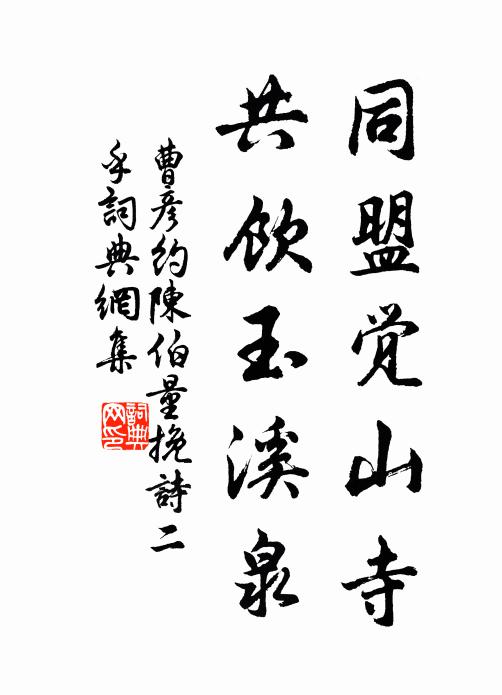 同盟觉山寺
共飲玉溪泉
曹彦約陳伯量挽詩二
手詞典網集
詞典
网印